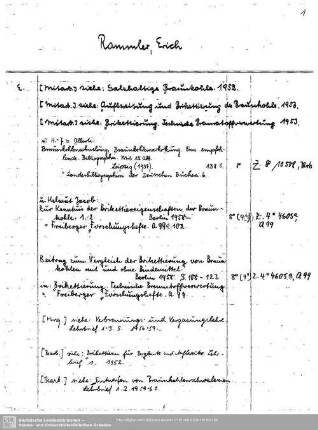 1
Rammler, Erich
E. [Mitarb.] siehe: Salzhaltige Braunkohle. 1952.
[Mitarb.] siehe: Aufbereitung und Brikettierung der Braunkohle. 1953.
[Mitarb.] siehe: Brikettierung. Technische Brennstoffverwertung 1953.
u. H.-J. v. Alberti:
Braunkohlenschwelung, Braunkohlenverkokung. Eine empfeh-
lende Bibliographie.
Leipzig (1957). 138 S. 8° Z. 8° /10558,
= Sonderbibliographien der Deutschen Bücherei 6.
u. Helmut Jacob:
Zur Kenntnis der Brikettiereigenschaften der Braun-
kohle. 1.2. Berlin 1958. 8° (4°); Z. 4° 4605a,
= Freiberger Forschungshefte. A 99. 102. A 99
Beitrag zum Vergleich der Brikettierung von Braun-
kohlen mit und ohne Bindemittel.
Berlin 1958. S. 100-122 8° (4°) Z. 4° 4605a, A 99
in: Brikettierung. Technische Brennstoffverwertung
= Freiberger Forschungshefte. A 99.
[Hrsg.] siehe: Verbrennungs- und Vergasungslehre.
Lehrbrief 1-3.5.
[Bearb.] siehe: Brikettieren für
brief 1. 1952.
[Bearb.] siehe: Entwerfen von Braunkohlenschwelereien
Lehrbrief 1.2. 1954-55.